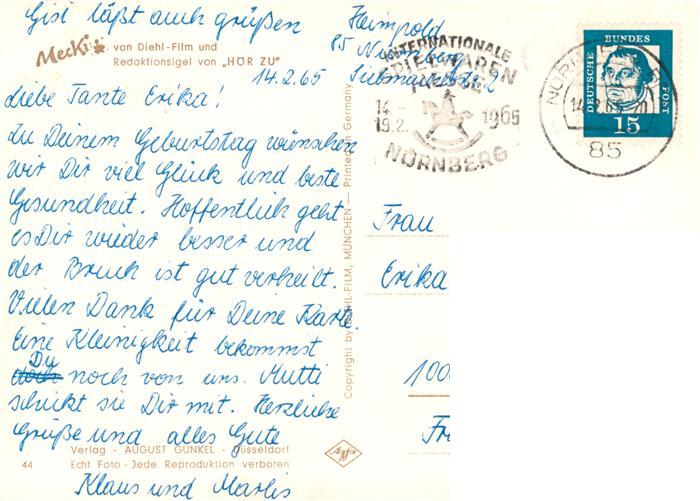 Gisi läßt auch grüßen
Mecki von Diehl-Film und
Redaktionsigel von „HÖR ZU"
14.2.65
Liebe Tante Erika!
Zu Deinem Geburtstag wünschen
wir Dir viel Glück und beste
Gesundheit. Hoffentlich geht
es Dir wieder besser und
der Bruch ist gut verheilt.
Vielen Dank für Deine Karte.
Eine Kleinigkeit bekommst
Du noch von uns. Mutti
schickt sie Dir mit. Herzliche
Grüße und alles Gute
Verlag - AUGUST GUNKEL - Düsseldorf
44 Echt Foto - Jede Reproduktion verboten
Klaus und Marlis
Copyright by DIEHL-FILM, MÜNCHEN — Printed in Germany
Agfa
Heimpold
85 Nürnberg
2
INTERNATIONALE
SPIELWAREN
MESSE
14.-
19.2. 1965
NÜRNBERG
NÜRNBERG
85
DEUTSCHE BUNDESPOST
15
Frau
Erika
100
Fr